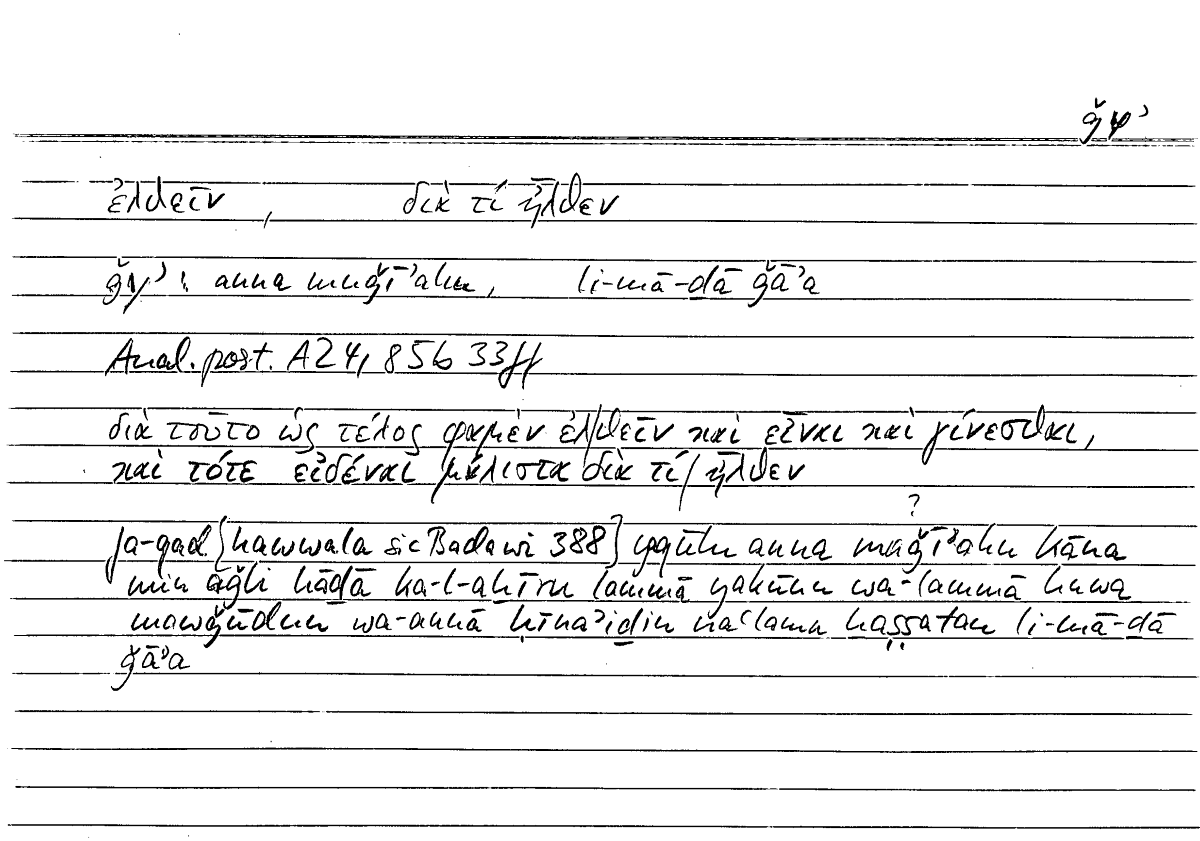 ǧyʾ
ἐλθεῖν, διὰ τί ἦλθεν
ǧyʾ: anna muǧīʾahu, li-mā-ḏā ǧāʾa
Anal. post. A24, 85b 33ff
διὰ τοῦτο ὡς τέλος φαμὲν ἐλθεῖν καὶ εἶναι καὶ γίνεσθαι,
καὶ τότε εἰδέναι μάλιστα διὰ τί ἦλθεν
?
fa-qad [hawwala sic Badawi 388] yqūlu anna maǧīʾahu kāna
min aǧli hāḏā ka-l-aḫīru lammā yakūnu wa-lammā huwa
mawǧūdun wa-annā ḥīnaʾiḏin naʿlamu ḫaṣṣatan li-mā-ḏā
ǧāʾa